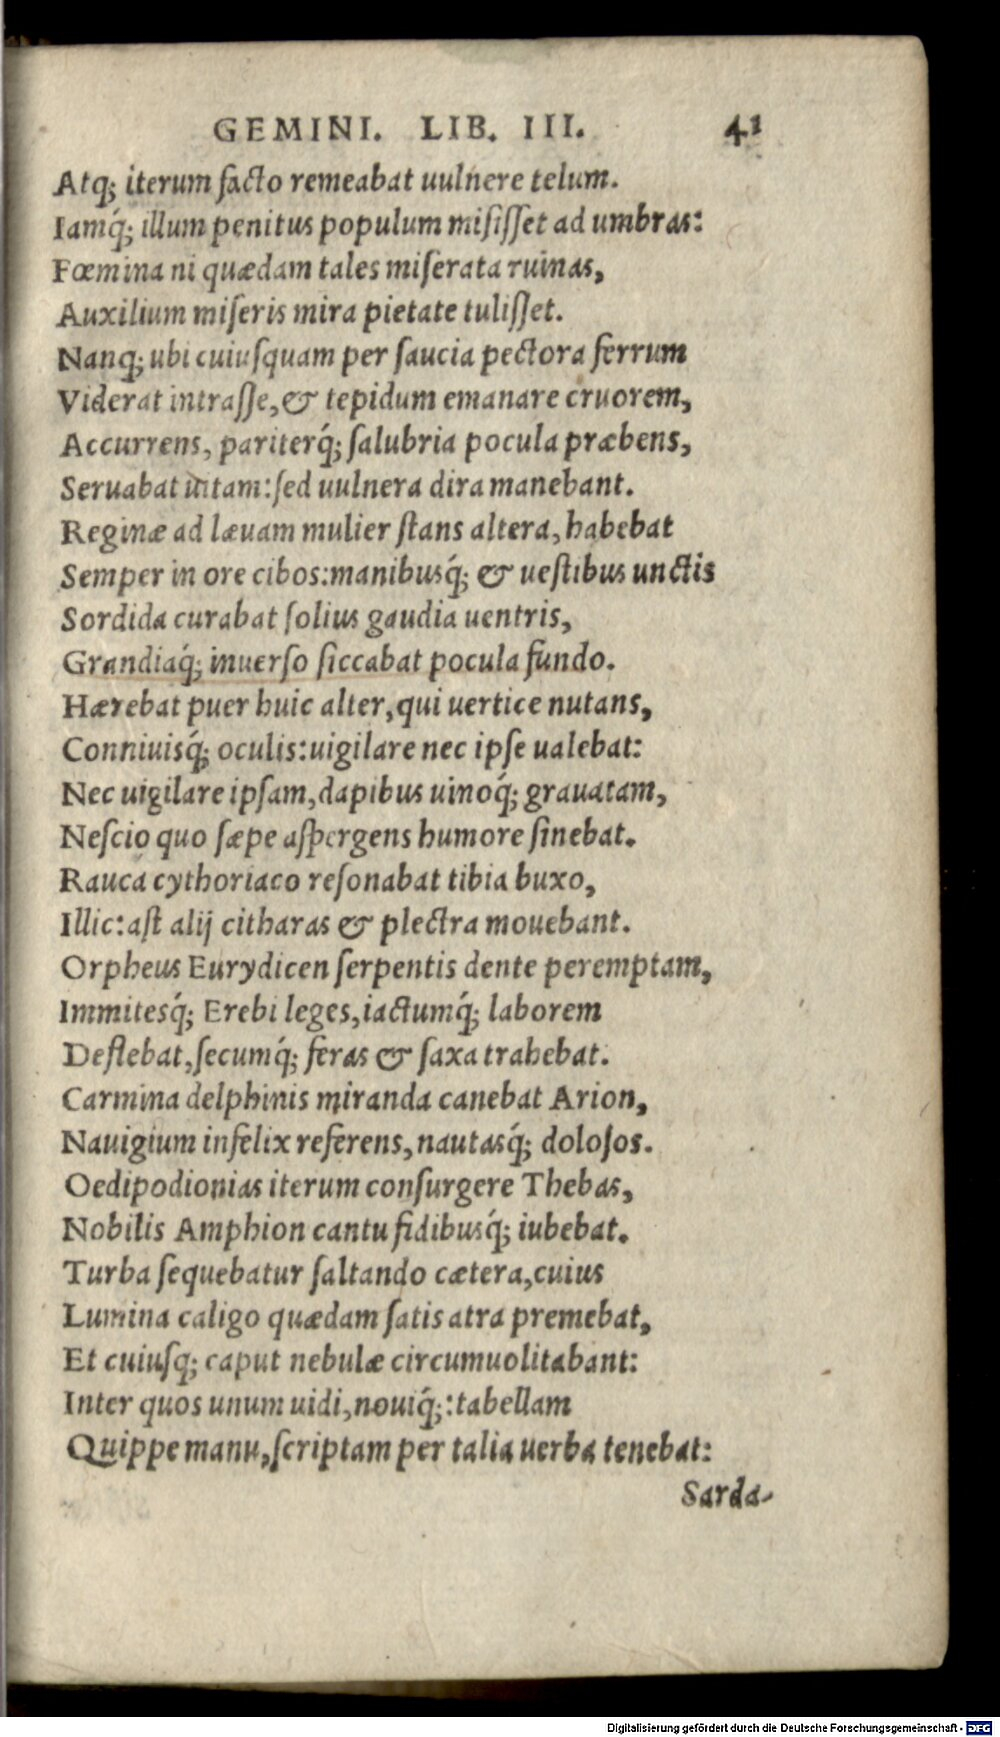 GEMINI. LIB. III. 41
Atq; iterum facto remeabat uulnere telum.
Iamq́; illum penitus populum misisset ad umbras:
Fœmina ni quædam tales miserata ruinas,
Auxilium miseris mira pietate tulisset.
Nanq; ubi cuiusquam per saucia pectora ferrum
Viderat intrasse, & tepidum emanare cruorem,
Accurrens, pariterq́; salubria pocula præbens,
Seruabat uitam: sed uulnera dira manebant.
Reginæ ad læuam mulier stans altera, habebat
Semper in ore cibos: manibusq́; & uestibus unctis
Sordida curabat solius gaudia uentris,
Grandiaq́; inuerso siccabat pocula fundo.
Hærebat puer huic alter, qui uertice nutans,
Conniuisq́; oculis: uigilare nec ipse ualebat:
Nec uigilare ipsam, dapibus uinoq́; grauatam,
Nescio quo sæpe aspergens humore sinebat.
Rauca cythoriaco resonabat tibia buxo,
Illic: ast alij citharas & plectra mouebant.
Orpheus Eurydicen serpentis dente peremptam,
Immitesq́; Erebi leges, iactumq́; laborem
Deflebat, secumq́; feras & saxa trahebat.
Carmina delphinis miranda canebat Arion,
Nauigium infelix referens, nautasq́; dolosos.
Oedipodionias iterum consurgere Thebas,
Nobilis Amphion cantu fidibusq́; iubebat.
Turba sequebatur saltando cætera, cuius
Lumina caligo quædam satis atra premebat,
Et cuiusq; caput nebulæ circumuolitabant:
Inter quos unum uidi, nouiq́;: tabellam
Quippe manu, scriptam per talia uerba tenebat:
Sarda-
Digitalisierung gefördert durch die Deutsche Forschungsgemeinschaft - DFG